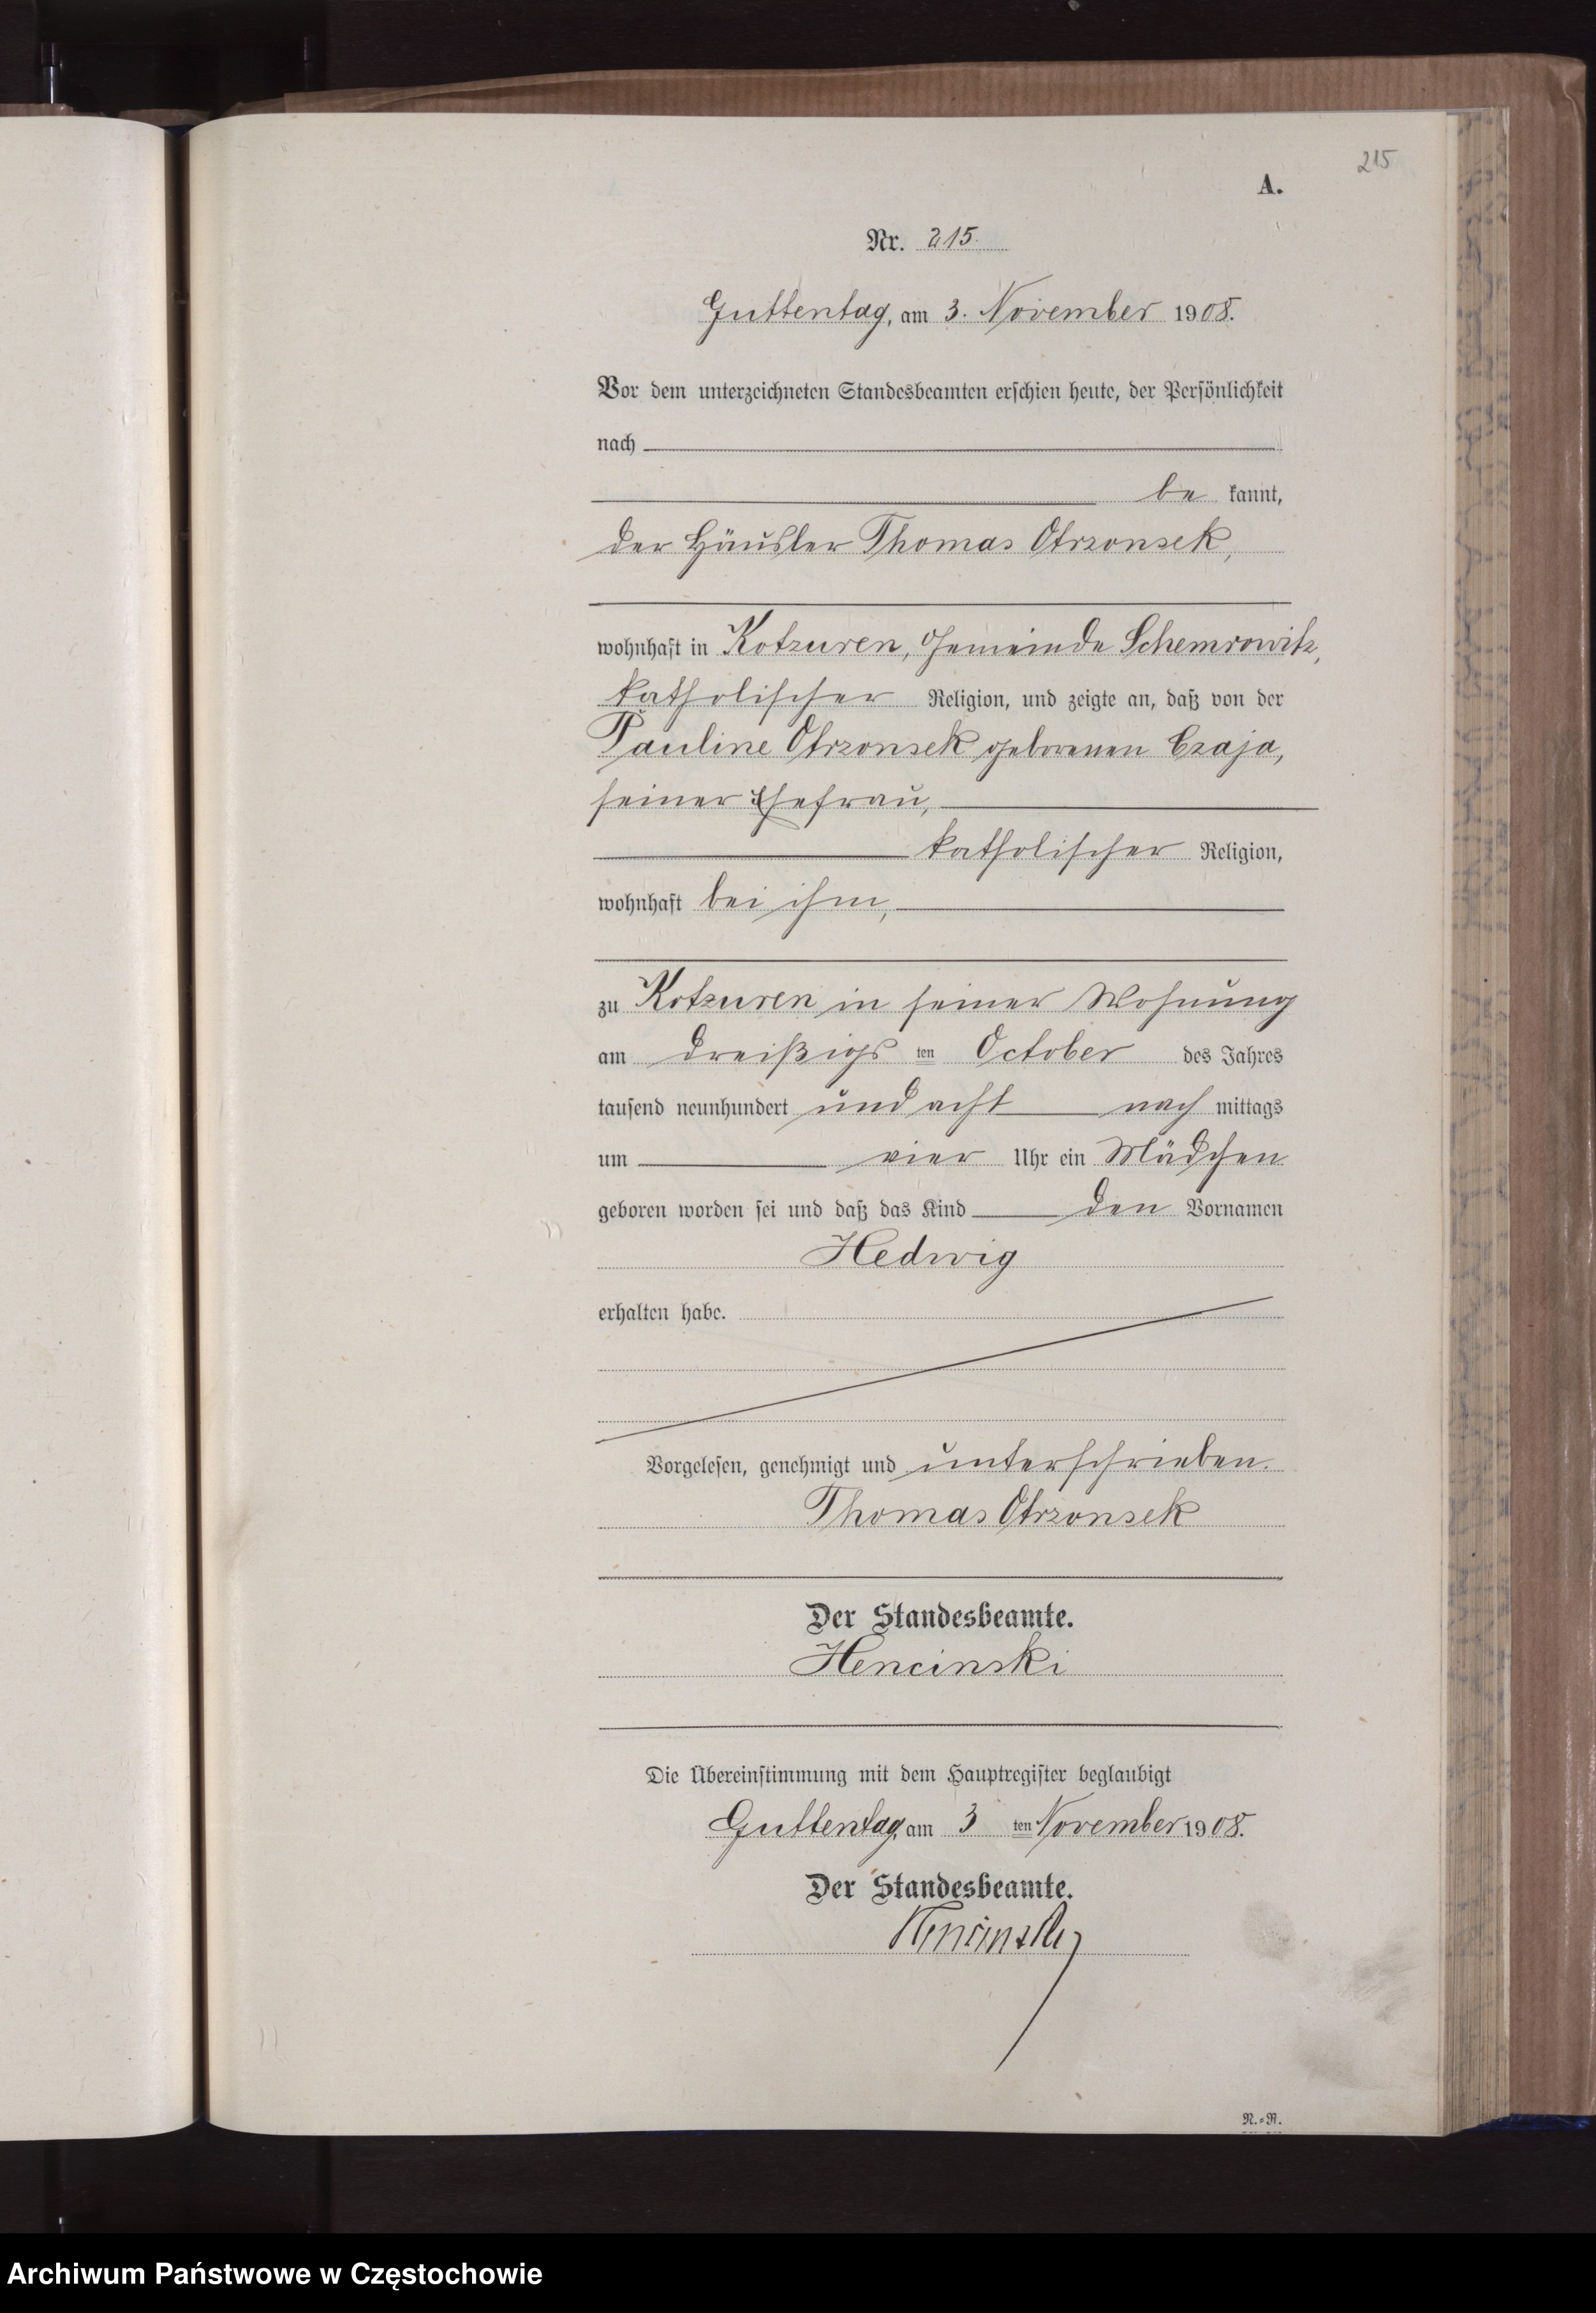 215
A.
Nr. 215.
Guttentag, am 3. November 1908.
Vor dem unterzeichneten Standesbeamten erschien heute, der Persönlichkeit
nach
be kannt,
der Häusler Thomas Otrzonsek,
wohnhaft in Kotzuren, Gemeinde Schemrowitz,
katholischer Religion, und zeigte an, daß von der
Pauline Otrzonsek geborenen Czaja,
seiner Ehefrau,
katholischer Religion,
wohnhaft bei ihm,
zu Kotzuren in seiner Wohnung
am dreißigs ten October des Jahres
tausend neunhundert und acht nach mittags
um vier Uhr ein Mädchen
geboren worden sei und daß das Kind den Vornamen
Hedwig
erhalten habe.
Vorgelesen, genehmigt und unterschrieben.
Thomas Otrzonsek
Der Standesbeamte.
Hencinski
Die Übereinstimmung mit dem Hauptregister beglaubigt
Guttentag, am 3 ten November 1908.
Der Standesbeamte.
Hencinski
N.=R.
Archiwum Państwowe w Częstochowie